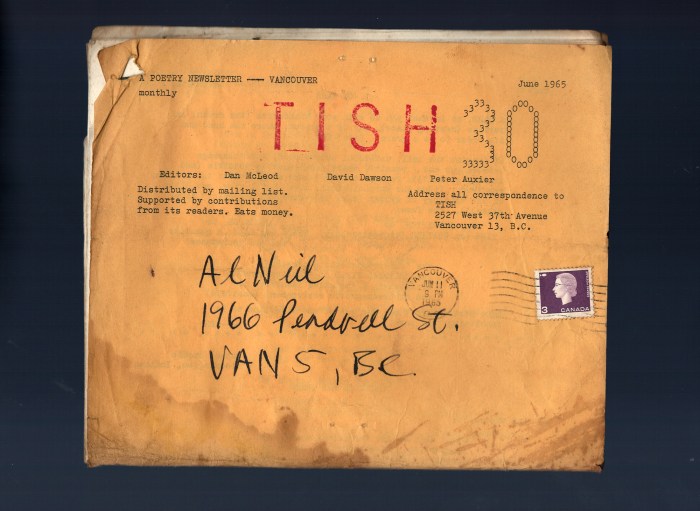 A POETRY NEWSLETTER --- VANCOUVER
June 1965
monthly
TISH 30
Editors: Dan McLeod David Dawson Peter Auxier
Distributed by mailing list.
Supported by contributions
from its readers. Eats money.
Address all correspondence to
TISH
2527 West 37th Avenue
Vancouver 13, B.C.
Al Neil
1966 Pendrell St.
VAN 5, BC.
VANCOUVER
JUN 11
PM
1965
3
CANADA